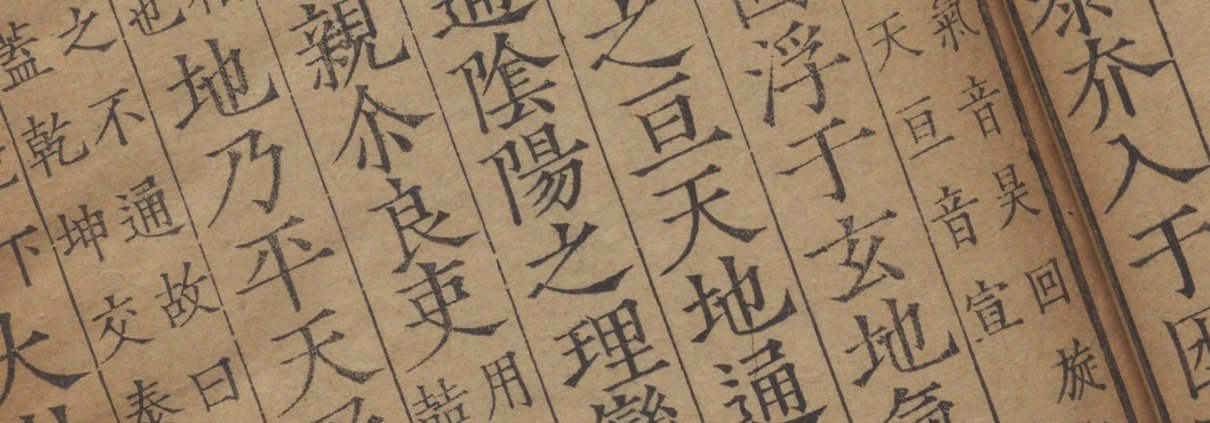 夰入于
氣音昊回旋
天亘音宣
浮于玄地氣
之亘天地通
通陰陽之理變
親尒良吏
用
喆
地乃平天
也
之不通故曰
蓋乾坤交泰
下大